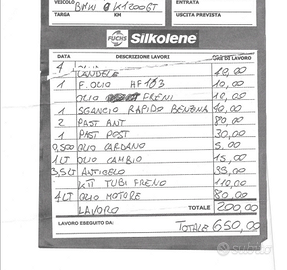 VEICOLO BMW K1200GT ENTRATA
TARGA KM USCITA PREVISTA
FUCHS Silkolene
DATA DESCRIZIONE LAVORI ORE DI LAVORO
4 CANDELE 40,00
1 F. OLIO HF 183 10,00
OLIO FRENI 10,00
1 SGANCIO RAPIDO BENZINA 40,00
2 PAST ANT 80,00
1 PAST POST 30,00
0,500 OLIO CARDANO 5,00
1 LT OLIO CAMBIO 15,00
3,5 LT ANTIGELO 35,00
KIT TUBI FRENO 110,00
4 LT OLIO MOTORE 80,00
LAVORO TOTALE 200,00
LAVORO ESEGUITO DA: TOTALE 650,00
subito